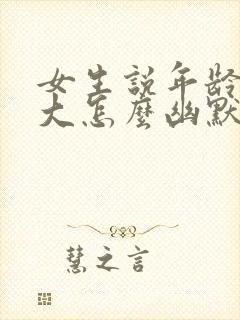 女生说年龄
大怎麼幽默
慧之言